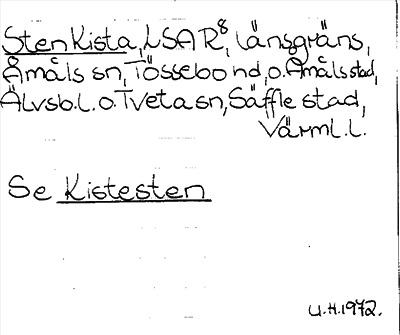 Sten Kista, LSA R8, länsgräns,
Åmåls sn, Tössebo hd, o. Åmåls stad,
Älvsb. l. o. Tveta sn, Säffle stad,
Värml. l.
Se Kistesten
U.H. 1972.